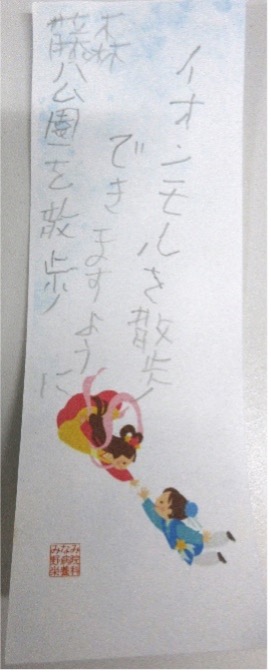 イオンモルを散歩
できますように
森
藤公園を散歩
みなみ
野病院
栄養科